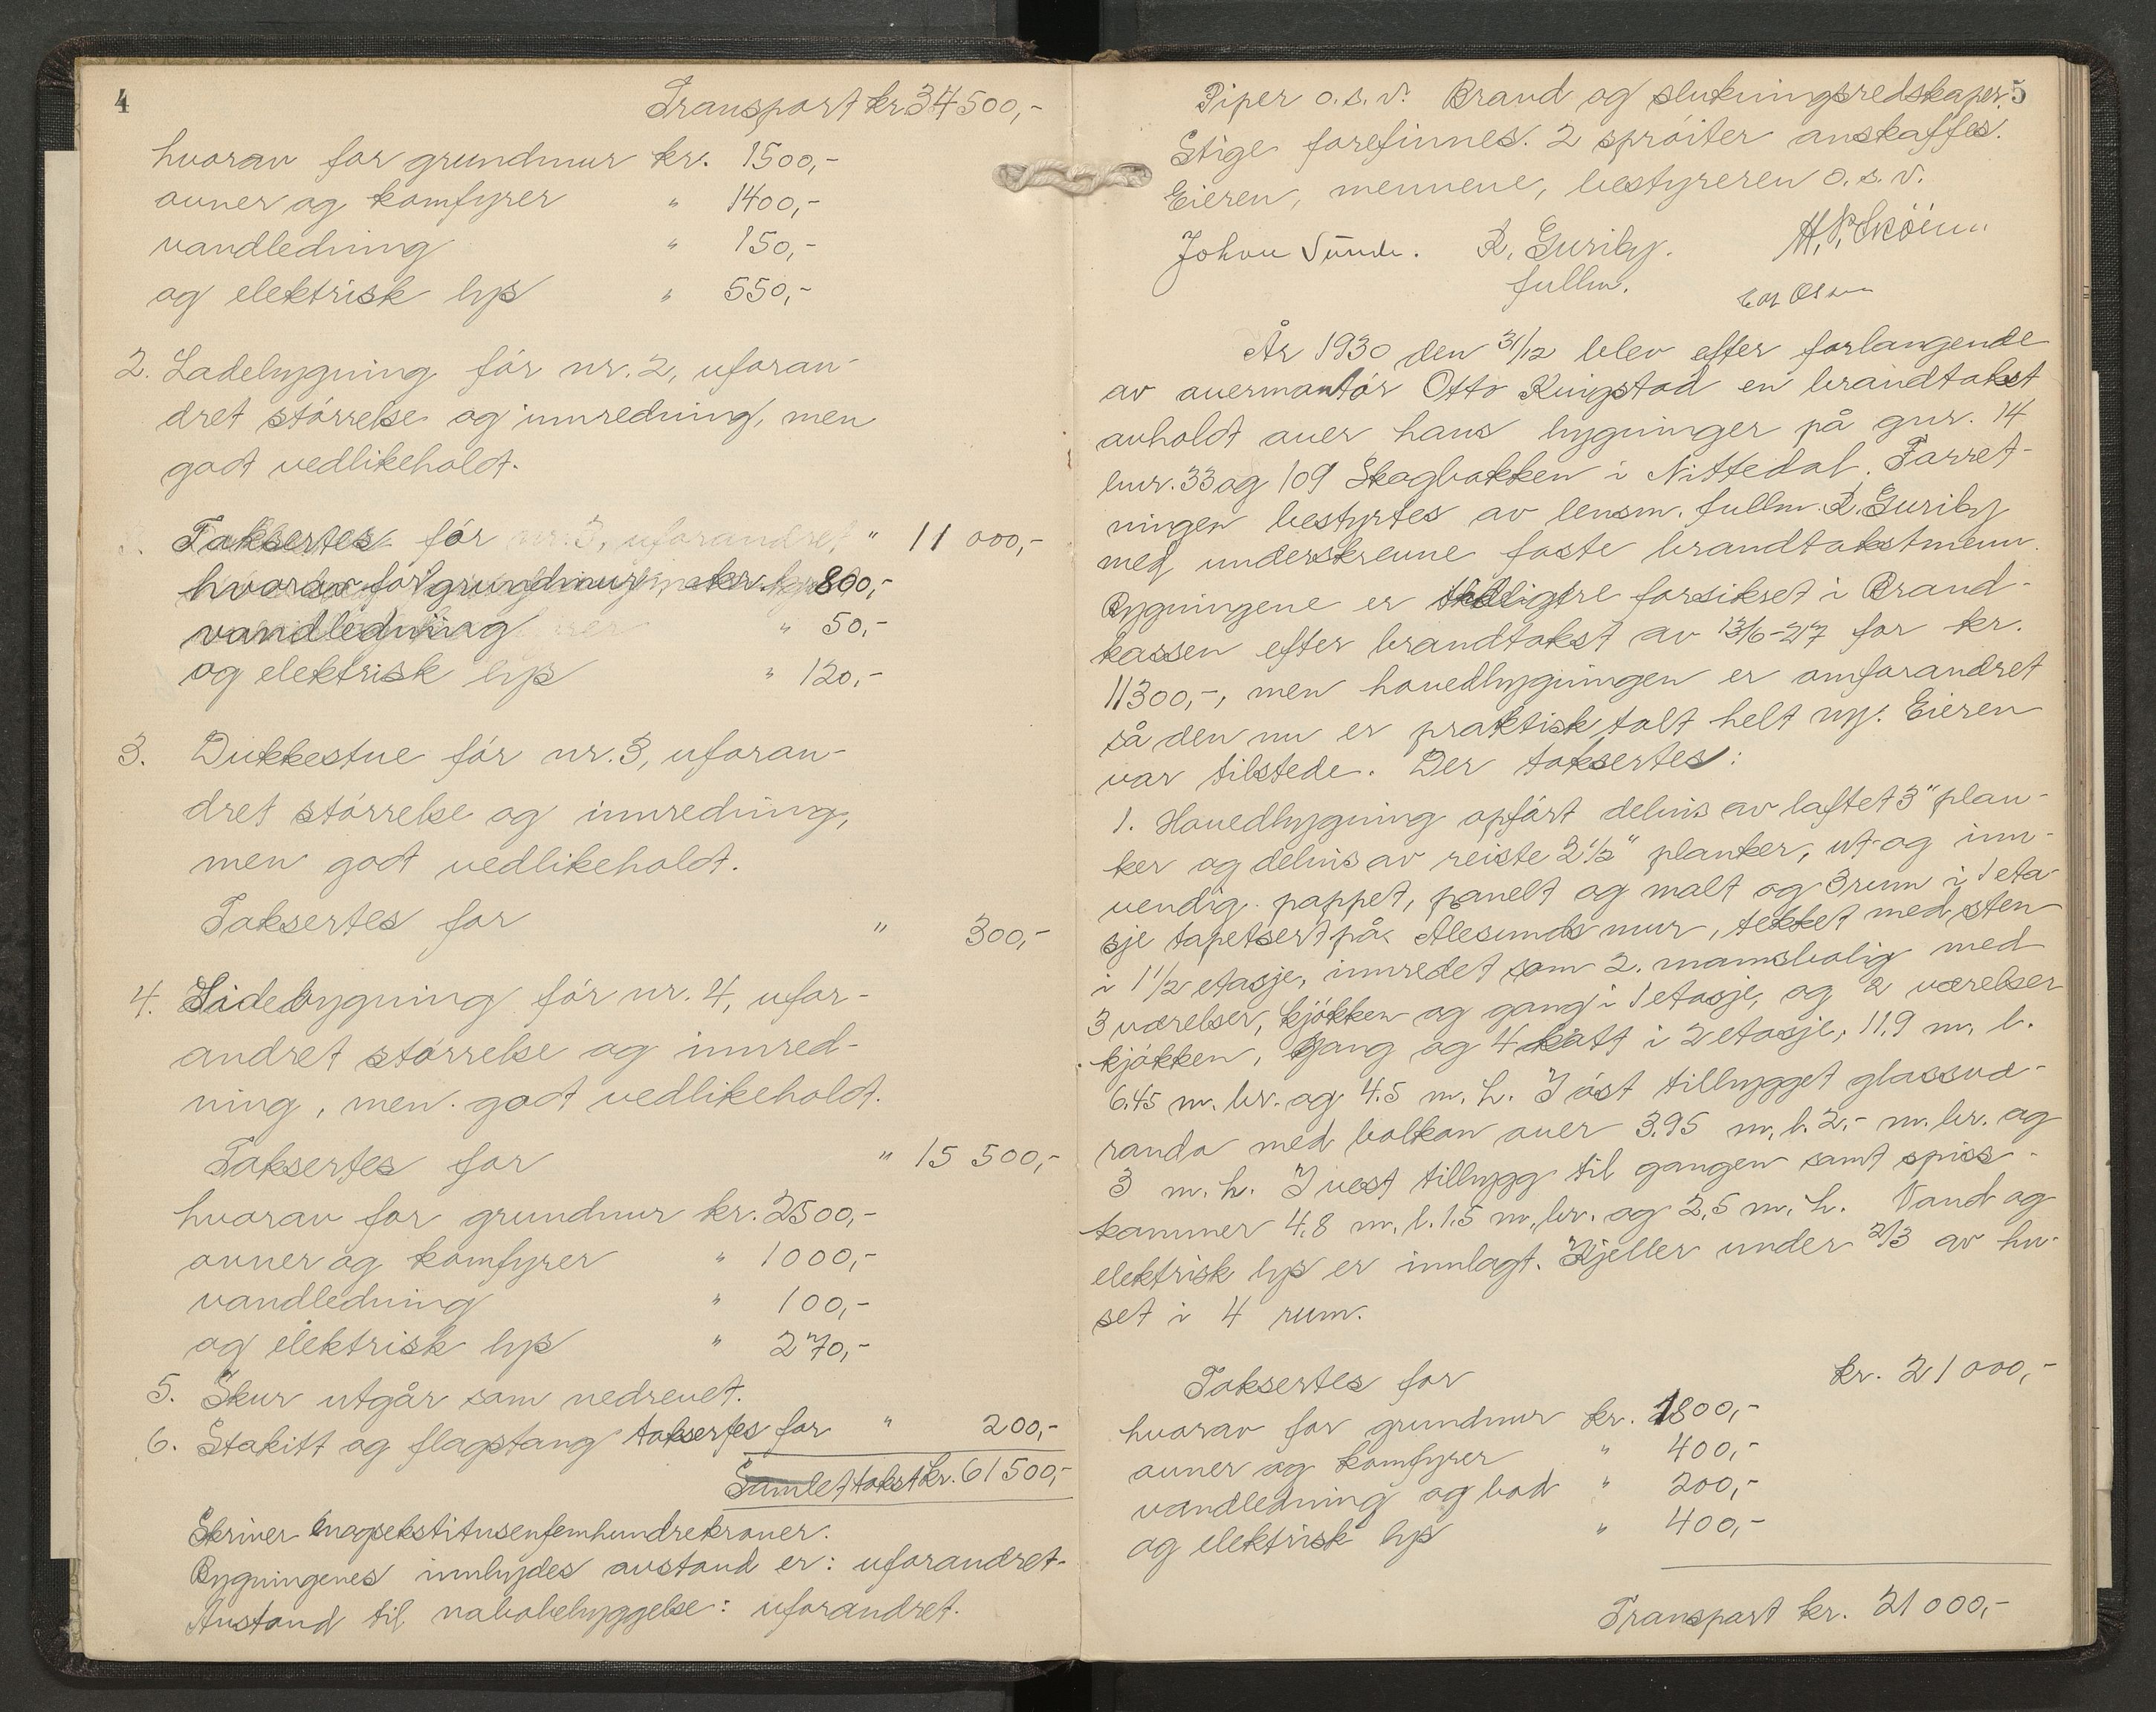 4
Transport kr. 34 500,-
hvorav for grundmur kr. 1500,-
ovner og komfyrer " 1400,-
vandledning " 150,-
og elektrisk lys " 550,-
2. Ladebygning før nr. 2, uforan-
dret størrelse og innredning, men
godt vedlikeholdt.
Taksertes for " 11 000,-
hvorav for grundmur kr. 800,-
vandledning " 50,-
og elektrisk lys " 120,-
3. Dukkestue før nr. 3, uforan-
dret størrelse og innredning,
men godt vedlikeholdt.
Taksertes for " 300,-
4. Sidebygning før nr. 4, ufor-
andret størrelse og innred-
ning, men godt vedlikeholdt.
Taksertes for " 15 500,-
hvorav for grundmur kr. 2500,-
ovner og komfyrer " 1000,-
vandledning " 100,-
og elektrisk lys " 270,-
5. Skur utgår som nedrevet.
6. Stakitt og flagstang taksertes for " 200,-
Samlet takst kr. 61 500,-
Skriver enogsekstitusenfemhundrekroner.
Bygningenes innbydes avstand er: uforandret.
Avstand til nabobebyggelse: uforandret.
5
Piper o.s.v. Brand og slukningsredskaper.
Stige forefinnes. 2 sprøiter anskaffes.
Eieren, mennene, bestyreren o.s.v.
Johan Sünde. R. Guriby. H. P. Skøien
fullm.
Olsen
År 1930 den 31/12 blev efter forlangende
av overmontør Otto Ringstad en brandtakst
avholdt over hans bygninger på gnr. 14
bnr. 33 og 109 Skogbakken i Nittedal. Forret-
ningen bestyrtes av lensm. fullm. R. Guriby
med underskrevne faste brandtakstmenn.
Bygningene er tidligere forsikret i Brand-
kassen efter brandtakst av 13/6-27 for kr.
11300,-, men hovedbygningen er omforandret
så den nu er praktisk talt helt ny. Eieren
var tilstede. Der taksertes:
1. Hovedbygning opført delvis av laftet 3" plan-
ker og delvis av reiste 2 1/2" planker, ut og inn-
vendig pappet, panelt og malt og 3 rum i 1 eta-
sje tapetsert på Alesunds mur, tekket med sten
i 1 1/2 etasje, innredet som 2. mannsbolig med
3 værelser, kjøkken og gang i 1 etasje, og 2 værelser
kjøkken, gang og 4 kott i 2 etasje, 11.9 m. l.
6.45 m. br. og 4.5 m. h. I øst tilbygget glassve-
randa med balkon over 3.95 m. l. 2,- m. br. og
3 m. h. I vest tilbygg til gangen samt spiss-
kammer 4.8 m. l. 1.5 m. br. og 2,5 m. h. Vand og
elektrisk lys er innlagt. Kjeller under 2/3 av hu-
set i 4 rum.
Taksertes for kr. 21 000,-
hvorav for grundmur kr. 1800,-
ovner og komfyrer " 400,-
vandledning og bad " 200,-
og elektrisk lys " 400,-
Transport kr. 21 000,-